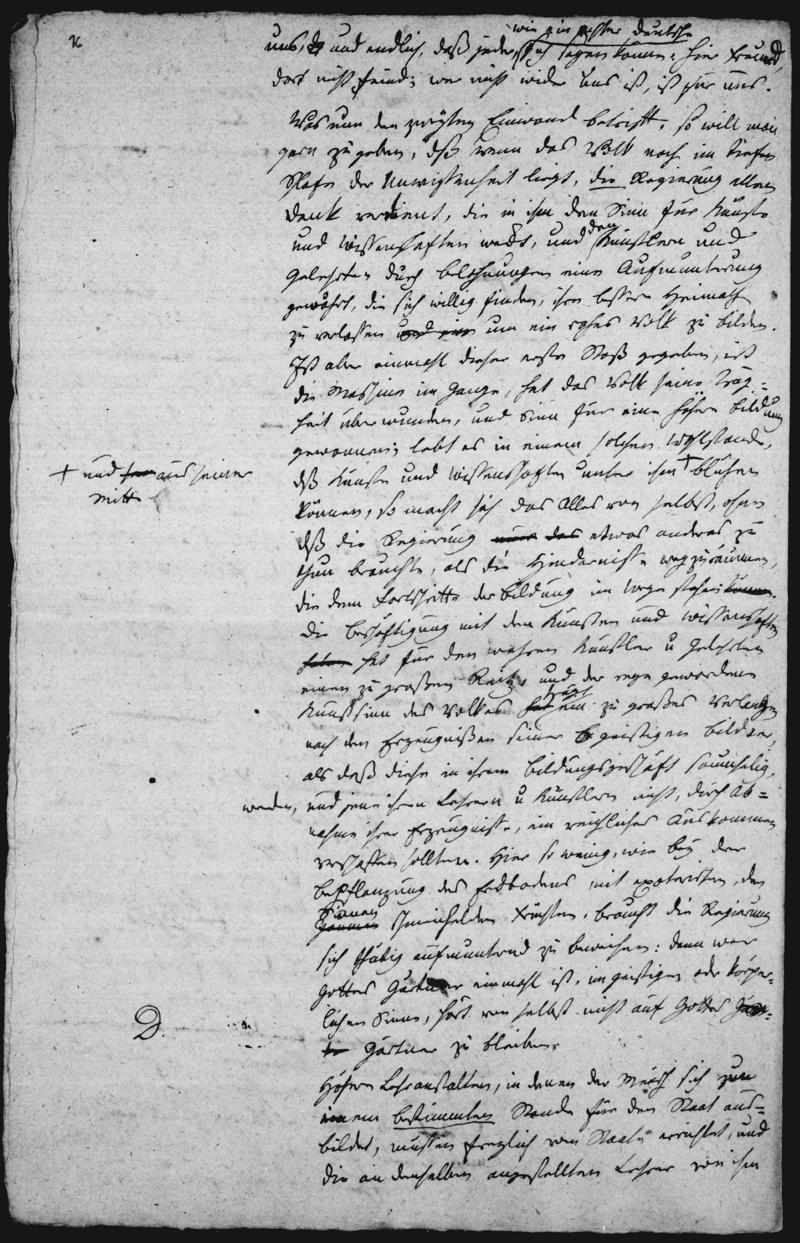 wie ein ächter Deutsche
uns, und endlich, daß jeder sich sagen könne: hier Freund,
dort nicht Feind; wer nicht wider uns ist, ist für uns.
Was nun den zweyten Einwand betrifft, so will man
gern zugeben, daß wenn das Volk noch im tiefen
Schlafe der Unwissenheit liegt, die Regierung allen
Dank verdient, die in ihm den Sinn für Künste
und Wissenschaften weckt, und den Künstlern und
Gelehrten durch Belohnungen eine Aufmunterung
gewährt, die sich willig finden, ihre bessere Heimath
zu verlassen und um ein rohes Volk zu bilden.
Ist aber einmahl dieser erste Stoß gegeben, ist
die Maschine im Gange, hat das Volk seine Träg=
heit überwunden, und Sinn für eine höhere Bildung
gewonnen; lebt es in einem solchen Wohlstande,
daß Künste und Wissenschaften unter ihm + blühen
+ und aus seiner
Mitte
können, so macht sich das Alles von selbst, ohne
daß die Regierung das etwas anderes zu
thun brauchte, als die Hindernisse wegzuräumen,
die dem Fortschritte der Bildung im Wege stehen
Die Beschäftigung mit den Künsten und Wissenschaften
hat für den wahren Künstler u Gelehrten
einen zu großen Reitz, und der rege gewordene
Kunstsinn des Volkes hegt ein zu großes Verlangen
nach den Erzeugnißen seiner geistigen Bildner,
als daß diese in ihrem Bildungsgeschäft saumselig
werden, und jene ihren Lehrern u Künstlern nicht, durch Ab=
nahme ihrer Erzeugnisse, ein reichliches Auskommen
verschaffen sollten. Hier so wenig, wie bey der
Bepflanzung des Erdbodens mit den
Sinnen
Gaumen schmeichelden Früchten, braucht die Regierung
sich thätig aufmunternd zu beweisen: denn wer
Gottes Gärtner einmahl ist, im geistigen oder körper=
lichen Sinne, hört von selbst nicht auf Gottes
D.
Gärtner zu bleiben.
Höhere Lehranstalten, in denen der Mensch sich zum
einem bestimmten Stande für den Staat aus=
bildet, müssen freylich vom Staate errichtet, und
die an denselben angestellten Lehrer von ihm